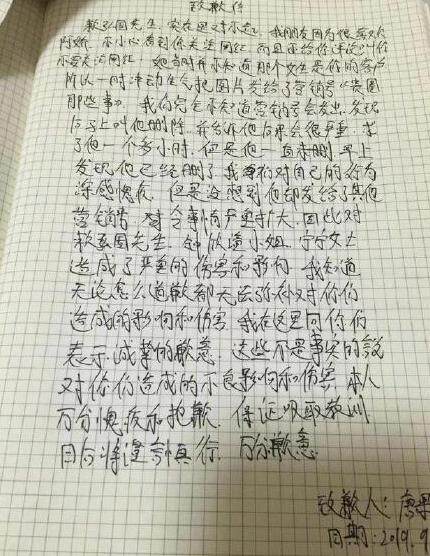 致歉信
赖弘国先生,实在是对不起,我朋友因为很喜欢
阿娇,不小心看到你关注网红,而且还给你评论叫你
不要关注网红,她当时并不知道那个女生是你的客户
所以一时冲动生气把图片发给了营销号《贵圈
那些事》,我们完全不知道营销号会发出,发现
后马上叫他删除,并告诉他后果会很严重,求
了他一个多小时,但是他一直未删,早上
发现他已经删了,我们对自己的行为
深感愧疚,但是没想到他却发给了其他
营销号,对令事情严重扩大,因此对
赖弘国先生,钟欣潼小姐,宁宁女士
造成了严重的伤害和影响,我知道
无论怎么道歉都无法弥补对你们
造成的影响和伤害,我在这里向你们
表示诚挚的歉意,这些不是事实的说
对你们造成的不良影响和伤害,本人
万分愧疚和抱歉,保证吸取教训
日后将谨言慎行,万分歉意.
致歉人:唐
日期:2019.9